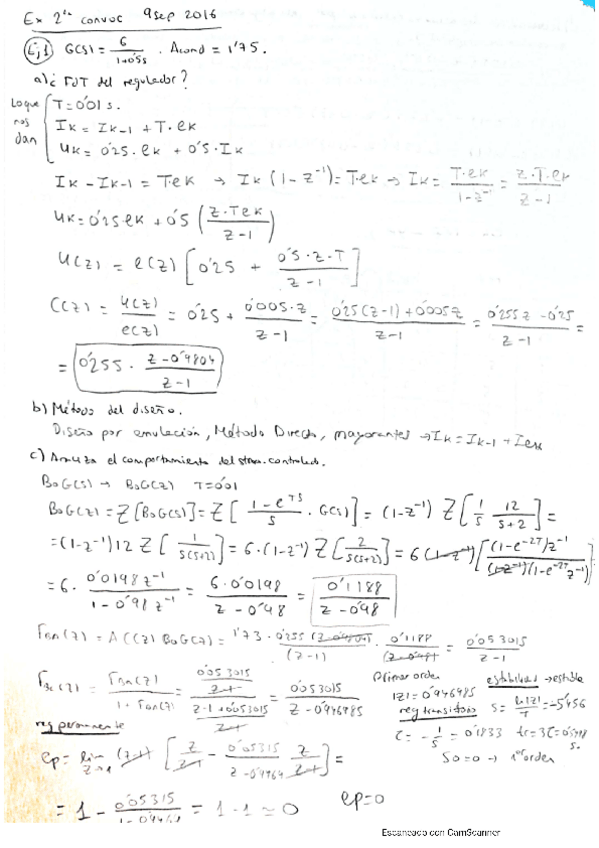 Ex 2ª convoc 9 sep 2016
Ej 1 G(s) = 6 / 1+0'5s . Acond = 1'75.
a) ¿ FdT del regulador?
Lo que nos dan
T = 0'01 s.
Ik = Ik-1 + T·ek
Uk = 0'25·ek + 0'5·Ik
Ik - Ik-1 = T·ek → Ik (1 - z^-1) = T·ek → Ik = T·ek / 1-z^-1 = z·T·ek / z-1
Uk = 0'25ek + 0'5 (z·Tek / z-1)
U(z) = e(z) [0'25 + 0'5·z·T / z-1]
C(z) = U(z) / e(z) = 0'25 + 0'005·z / z-1 = 0'25(z-1) + 0'005z / z-1 = 0'255z - 0'25 / z-1 =
= 0'255 · z-0'9804 / z-1
b) Método del diseño.
Diseño por emulación, Método Directo, mayorantes → Ik = Ik-1 + Tek
c) Analiza el comportamiento del stma. controlado.
BoG(s) → BoG(z) T=0'01
BoG(z) = Z[BoG(s)] = Z[ 1-e^-Ts / s · G(s)] = (1-z^-1) Z[ 1/s 12 / s+2 ] =
= (1-z^-1) 12 Z [ 1 / s(s+2) ] = 6·(1-z^-1) Z[ 2 / s(s+2) ] = 6 (1-z^-1) [ (1-e^-2T)z^-1 / (1-z^-1)(1-e^-2T z^-1) ]
= 6· 0'0198 z^-1 / 1-0'98 z^-1 = 6·0'0198 / z-0'98 = 0'1188 / z-0'98
FBA(z) = A C(z) BoG(z) = 1'73·0'255 (z-0'9804) / (z-1) · 0'1188 / (z-0'98) = 0'053015 / z-1
FBC(z) = FBA(z) / 1+FBA(z) = 0'053015 / z-1 / z-1+0'053015 / z-1 = 0'053015 / z-0'946985
Primer orden
|z| = 0'946985
estabilidad → estable
reg transitorio s = ln|z| / T = -5'456
τ = -1/s = 0'1833 ts = 3τ = 0'5498 s.
So = 0 → 1er orden
reg permanente
ep = lim z→1 (z-1) [ z / z-1 - 0'05315 / z-0'9469 z / z-1 ] =
= 1 - 0'05315 / 1-0'9469 = 1-1 = 0 ep = 0
Escaneado con CamScanner